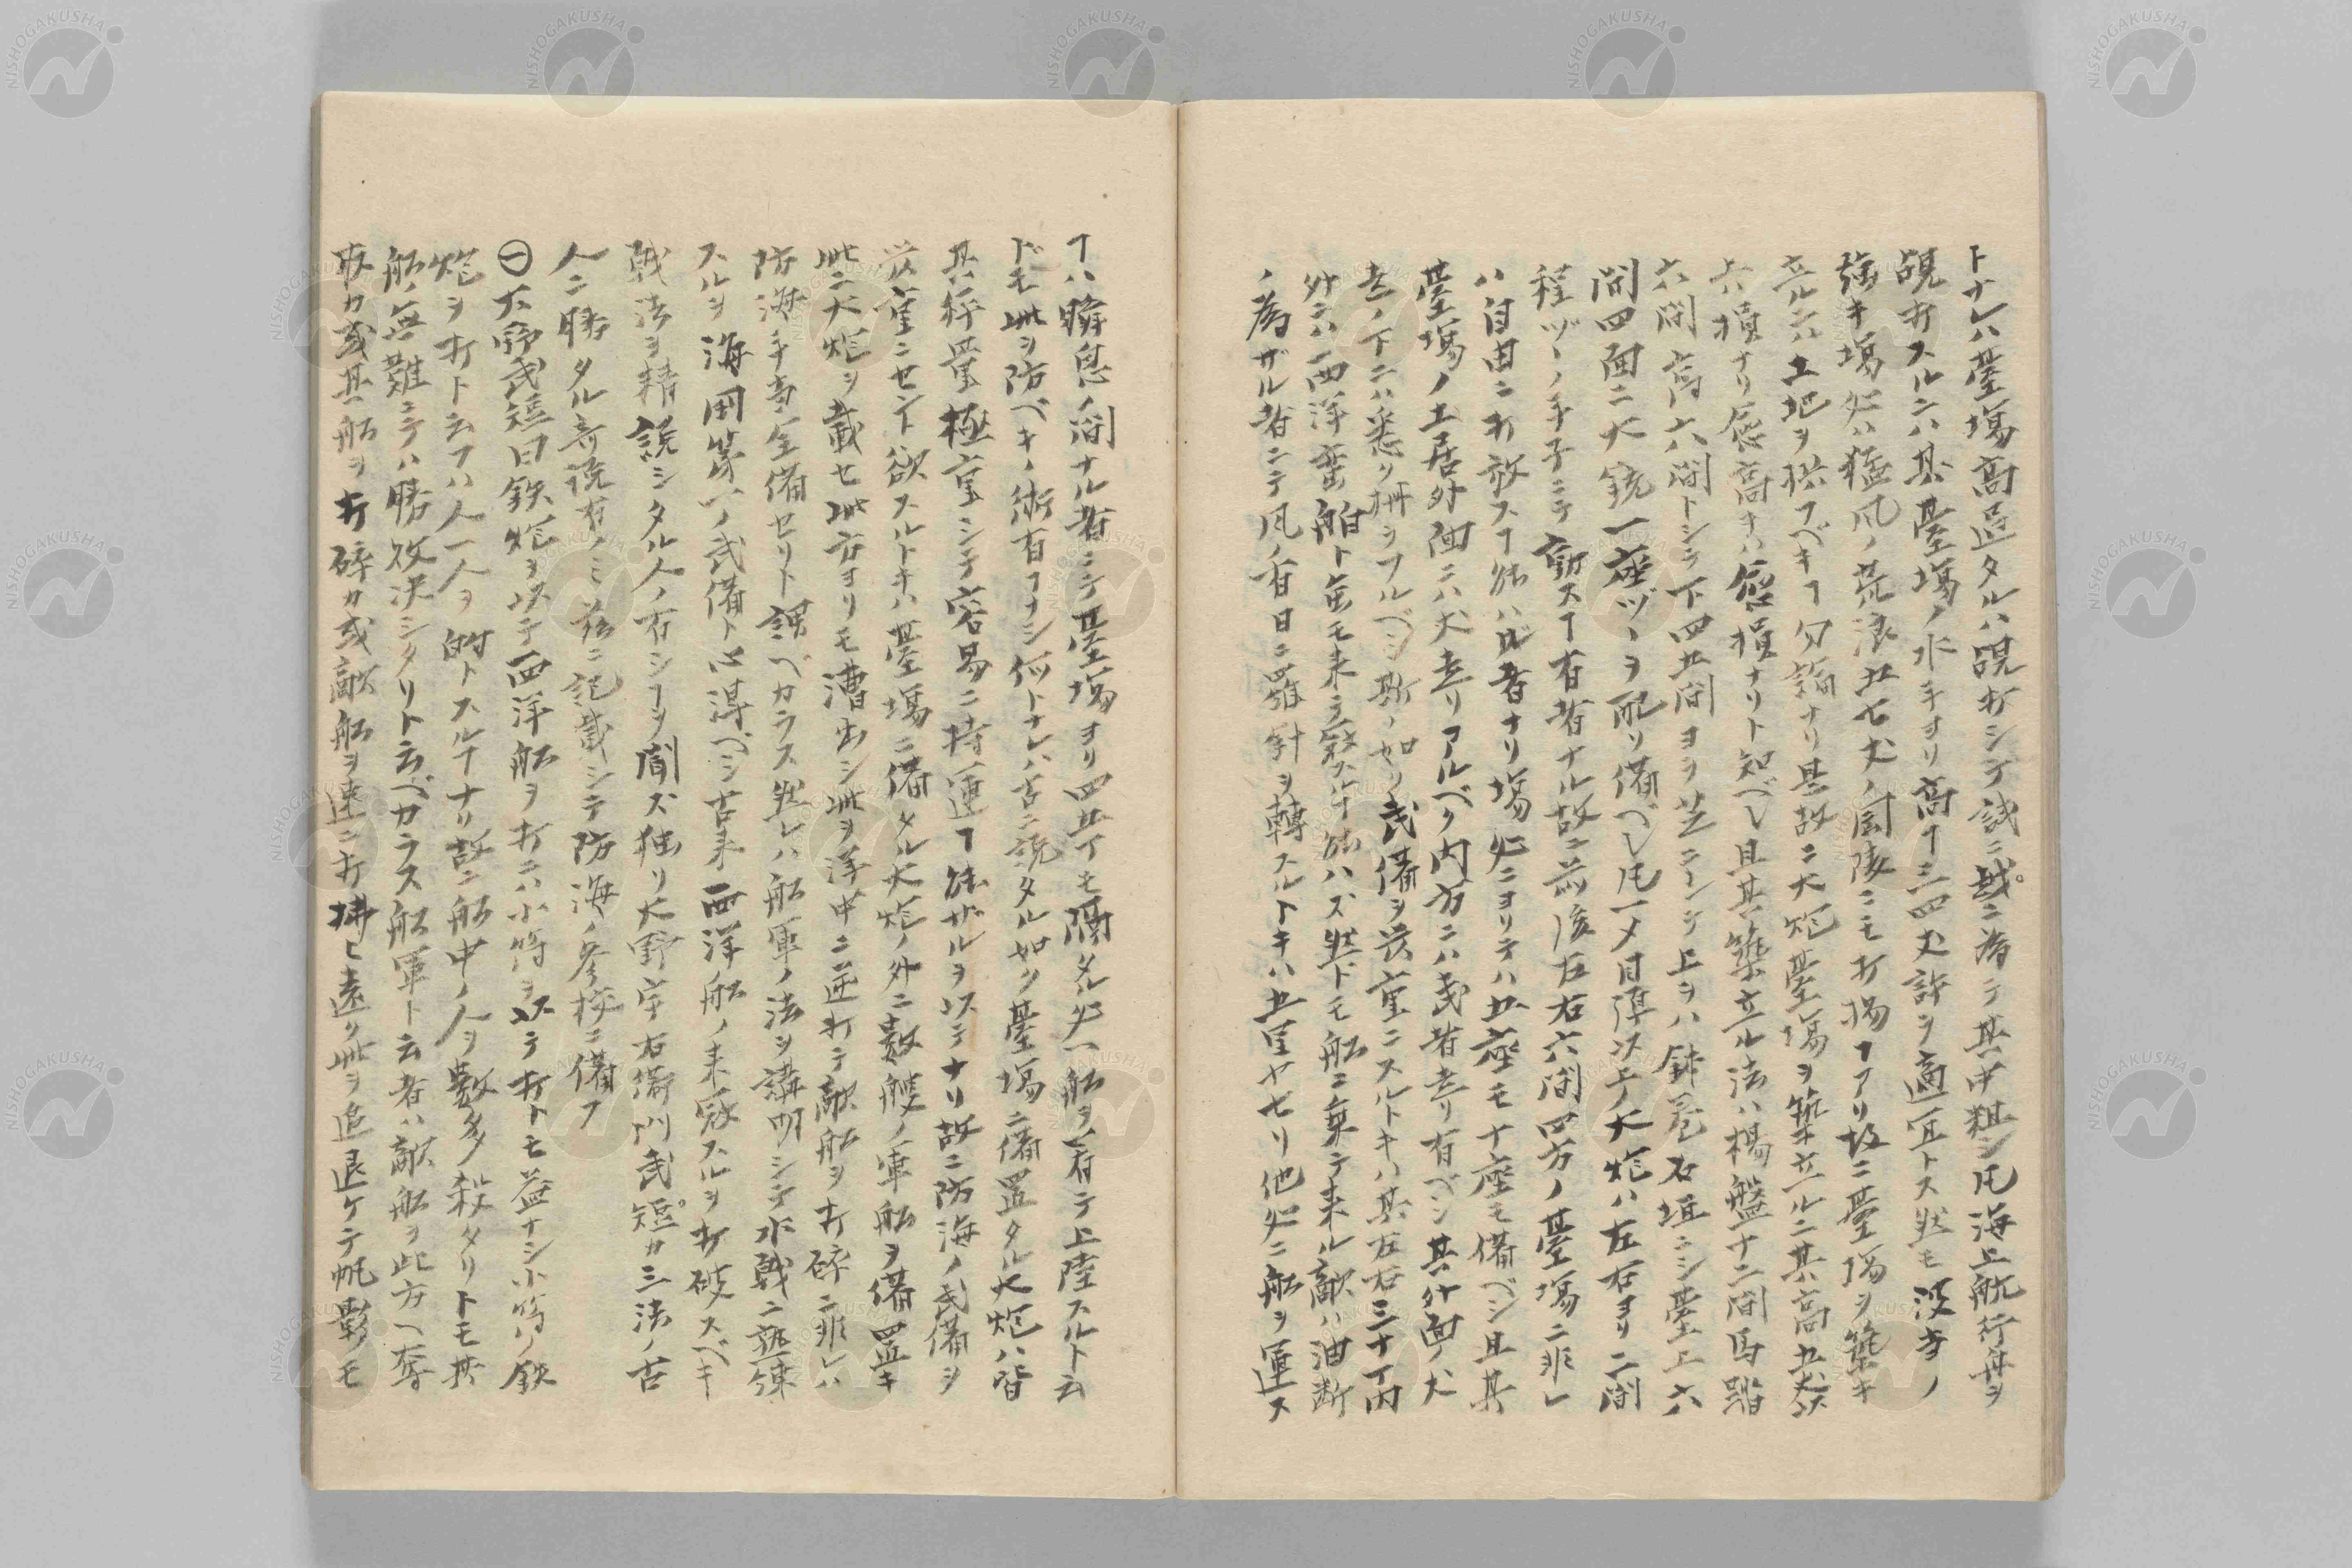 トナレハ臺場高過タルハ覘打シテ誠ニ越ニ為テ其中粗シ凡海上航行舟ヲ
覘打スルニハ其臺場ノ水手ヨリ高丁三四丈許ヲ適宜トス然モ波寺ノ
強キ場処ハ猛風ノ荒浪五七丈ノ間陵ニモ打揚フアリ故ニ臺場ヲ築キ
立ルニハ土地ヲ択フベキヿ勿論ナリ是故ニ大炮臺場ヲ築立ルニ其高五六
六損ナリ愿高ナハ愿損ナリト知ベレ且其築立ル法ハ楊盤十二間馬踏
六間高六間トシテ下四五間ヨヲ芝ニシテ上ヲハ鉢巻石垣ニシ臺上六
間四面ニ大銃一座ヅヽヲ配リ備ベレ凡一メ目準以上ノ大炮ハ左右ヨリ二間
程ヅヽノ手子ニテ動スヿ有者ナル故ニ前後左右六間四方ノ臺場ニ非レ
ハ自由ニ打放スヿ能ハザル者ナリ場処ニヨリテハ五座モ十座モ備ベシ且其
臺場ノ土居外面ニハ犬走リアルベク内方ニハ武者走リ有ベシ其外面ノ犬
走ノ下ニハ悉ク柵ヲフルベシ斯ノ如ク武備ヲ厳重ニスルトキハ其左右三十丁内
外ニハ西洋蛮舶ト雖モ来テ寇スル能ハズ然ドモ船ニ乗テ来ル敵ハ油断
ノ為ザル者ニテ風ノ有日ニ羅針ヲ轉スルトキハ五里ヤ七リ他処ニ船ヲ運ス
ヿハ瞬息ノ間ナル者ニテ臺場ヨリ四五丁モ隔タル処ヘ船ヲ着テ上陸スルト云
ドモ此ヲ防ベキノ術有ヿナシ何トナレハ古ニ説タル如ク臺場ニ備置タル大炮ハ皆
其秤量極重シテ容易ニ持運ヿ能ザルヲ以テナリ故ニ防海ノ武備ヲ
厳重ニセント欲スルトキハ臺場ニ備タル大炮ノ外ニ數艘ノ軍船ヲ備置キ
此ニ大炮ヲ載セ此方ヨリモ漕出シ此ヲ洋中ニ逆打テ敵船ヲ打碎ニ非レハ
防海手寺全備セリト謂ベカラス然レハ船軍ノ法ヲ講明シテ水戰ニ熟練
スルヲ海国第一ノ武備ト心得ベシ古来西洋船ノ来寇スルヲ打破スベキ
戰法ヲ精説シタル人ノ有シヿヲ聞ズ独リ大野宇右衛門武短カ三法ノ古
人ニ勝タル奇説有ノミ茲ニ記載シテ防海ノ参挍ニ備フ
㊀大野武短曰鉄炮ヲ以テ西洋船ヲ打ニハ小筒ヲ以テ打トモ益ナシ小筒ノ鉄
炮ヲ打ト云フハ人一人ヲ的トスルヿナリ故ニ船中ノ人ヲ數多殺タリトモ其
船ノ無難ニテハ勝敗決シタリト云ベカラス船軍ト云者ハ敵船ヲ此方ヘ奪
取カ或其船ヲ打碎カ或敵船ヲ速ニ打拂ヒ遠ク此ヲ追退ケテ帆影モ